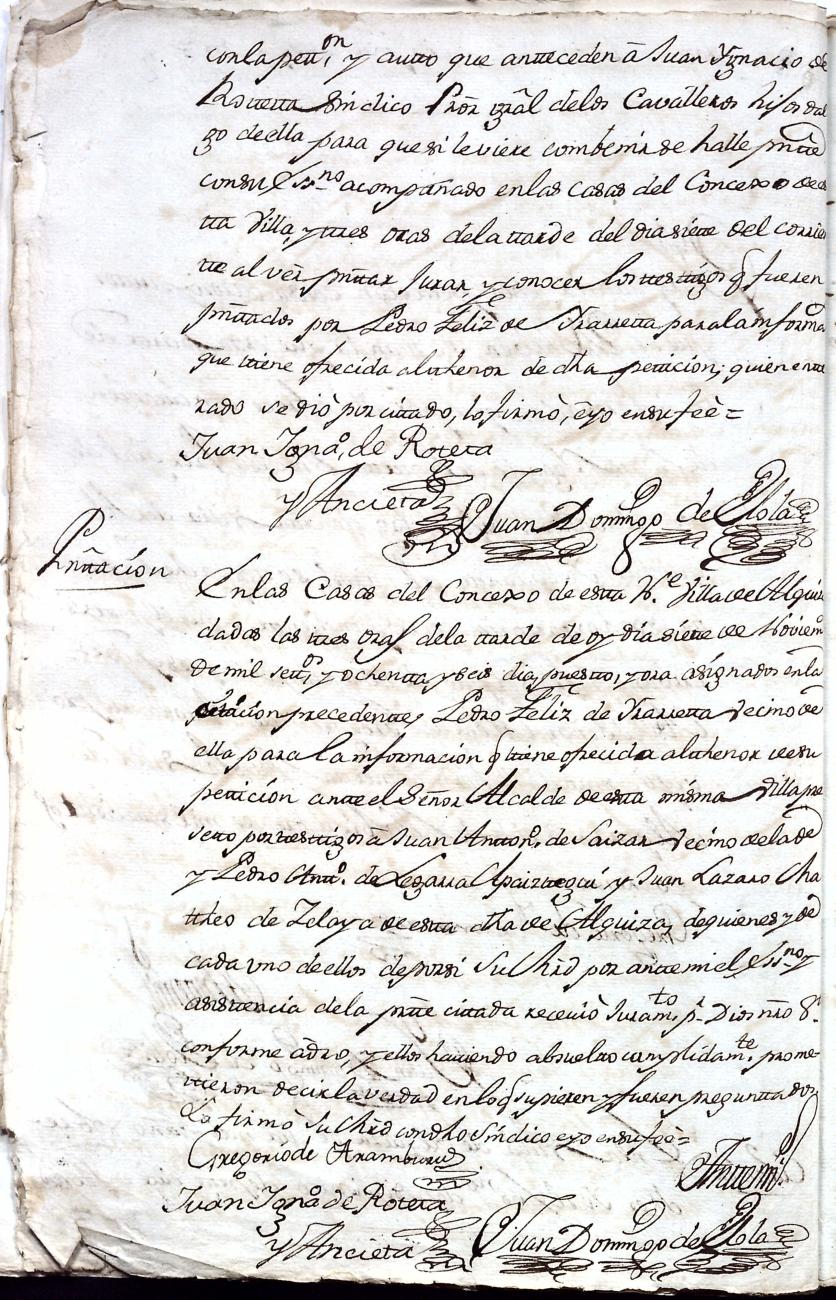 con la pettⁿ, y autto que antteceden â Juan Ygnacio de
Rotetta Síndico Pror gral delos Cavalleros hijos dal
go deella para que si le viere combenir se halle pntte
con su Essno acompañado enlas casas del Concexo de es
tta Villa, y ttres oras dela ttarde del dia siette del corrien
tte al vèr pnttar Jurar y conocer los testtigos q fueren
pnttados por Pedro Feliz de Yrarretta para la informa
que ttiene ofrecida al tthenor de dha petticion; quien entte
rado se diò por cittado, lo firmò, è yo en su feè =
Juan Ignaº, de Roteta
y Ancieta
Juan Domingo de Elola
Pnttacíon
En las Casas del Concexo de estta N.e Villa de Alquiza
dadas las ttres oras dela ttarde de oy dia siette de Noviemº
de mil settos, y ochentta y seis dia, puestto, y ora asignados en la
cittacion precedentte, Pedro Feliz de Yrarretta vecino de
ella para la informacion q ttiene ofrecida al tthenor de su
petticion antte el Señor Alcalde de estta misma Villa pre
sentto por testtigos â Juan Antton.º de Saizar vecino de la de
y Pedro Antt.º de Legarra Apaizttegui y Juan Lazaro Ma
ttheo de Zelaya de estta dha de Alquiza, de quienes y de
cada vno de ellos de por si Su Mrd por antte mi el Essno y
asisttencia dela partte cittada receviò Juramto, pr Dios nro Sr
conforme a dro, y ellos haviendo absuelto cumplidamte, prome-
ttieron decir la verdad en lo q supieren y fueren pregunttados
La firmò Su Mrd con dho síndico e yo en su feè =
Gregorio de Aramburu
Antte mi
Juan Ignº de Roteta
y Ancieta
Juan Domingo de Elola